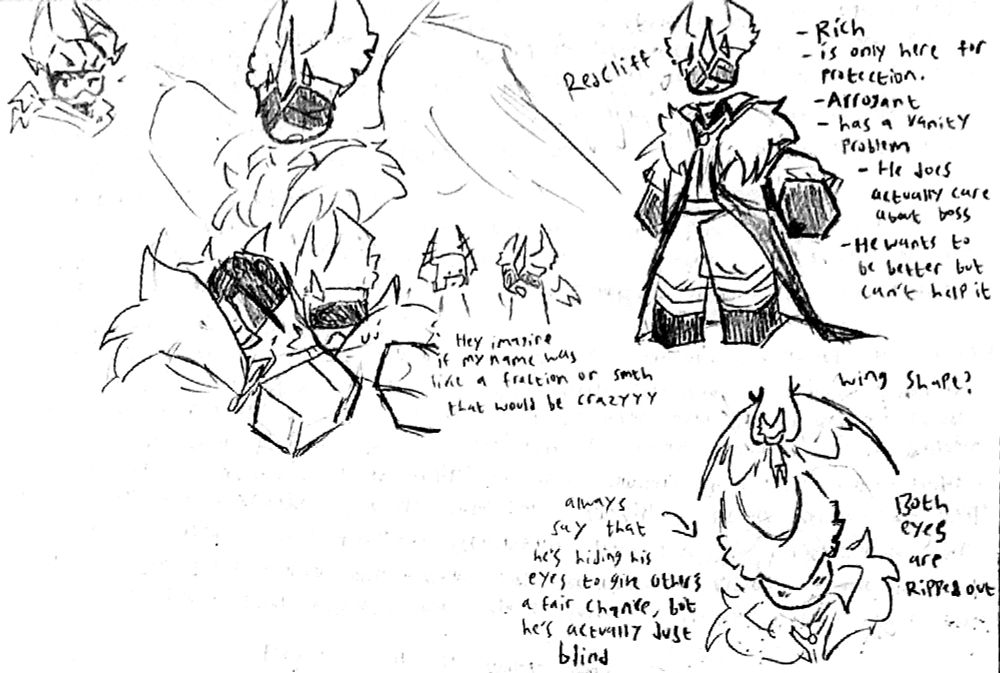 Redcliff
- Rich
- is only here for
protection.
- Arrogant
- has a vanity
problem
- He does
actually care
about boss
- He wants to
be better but
can't help it
Hey imagine
if my name was
like a fraction or smth
that would be crazyyy
wing shape?
always
say that
he's hiding his
eyes to give others
a fair chance, but
he's actually Just
blind
Both
eyes
are
Ripped out